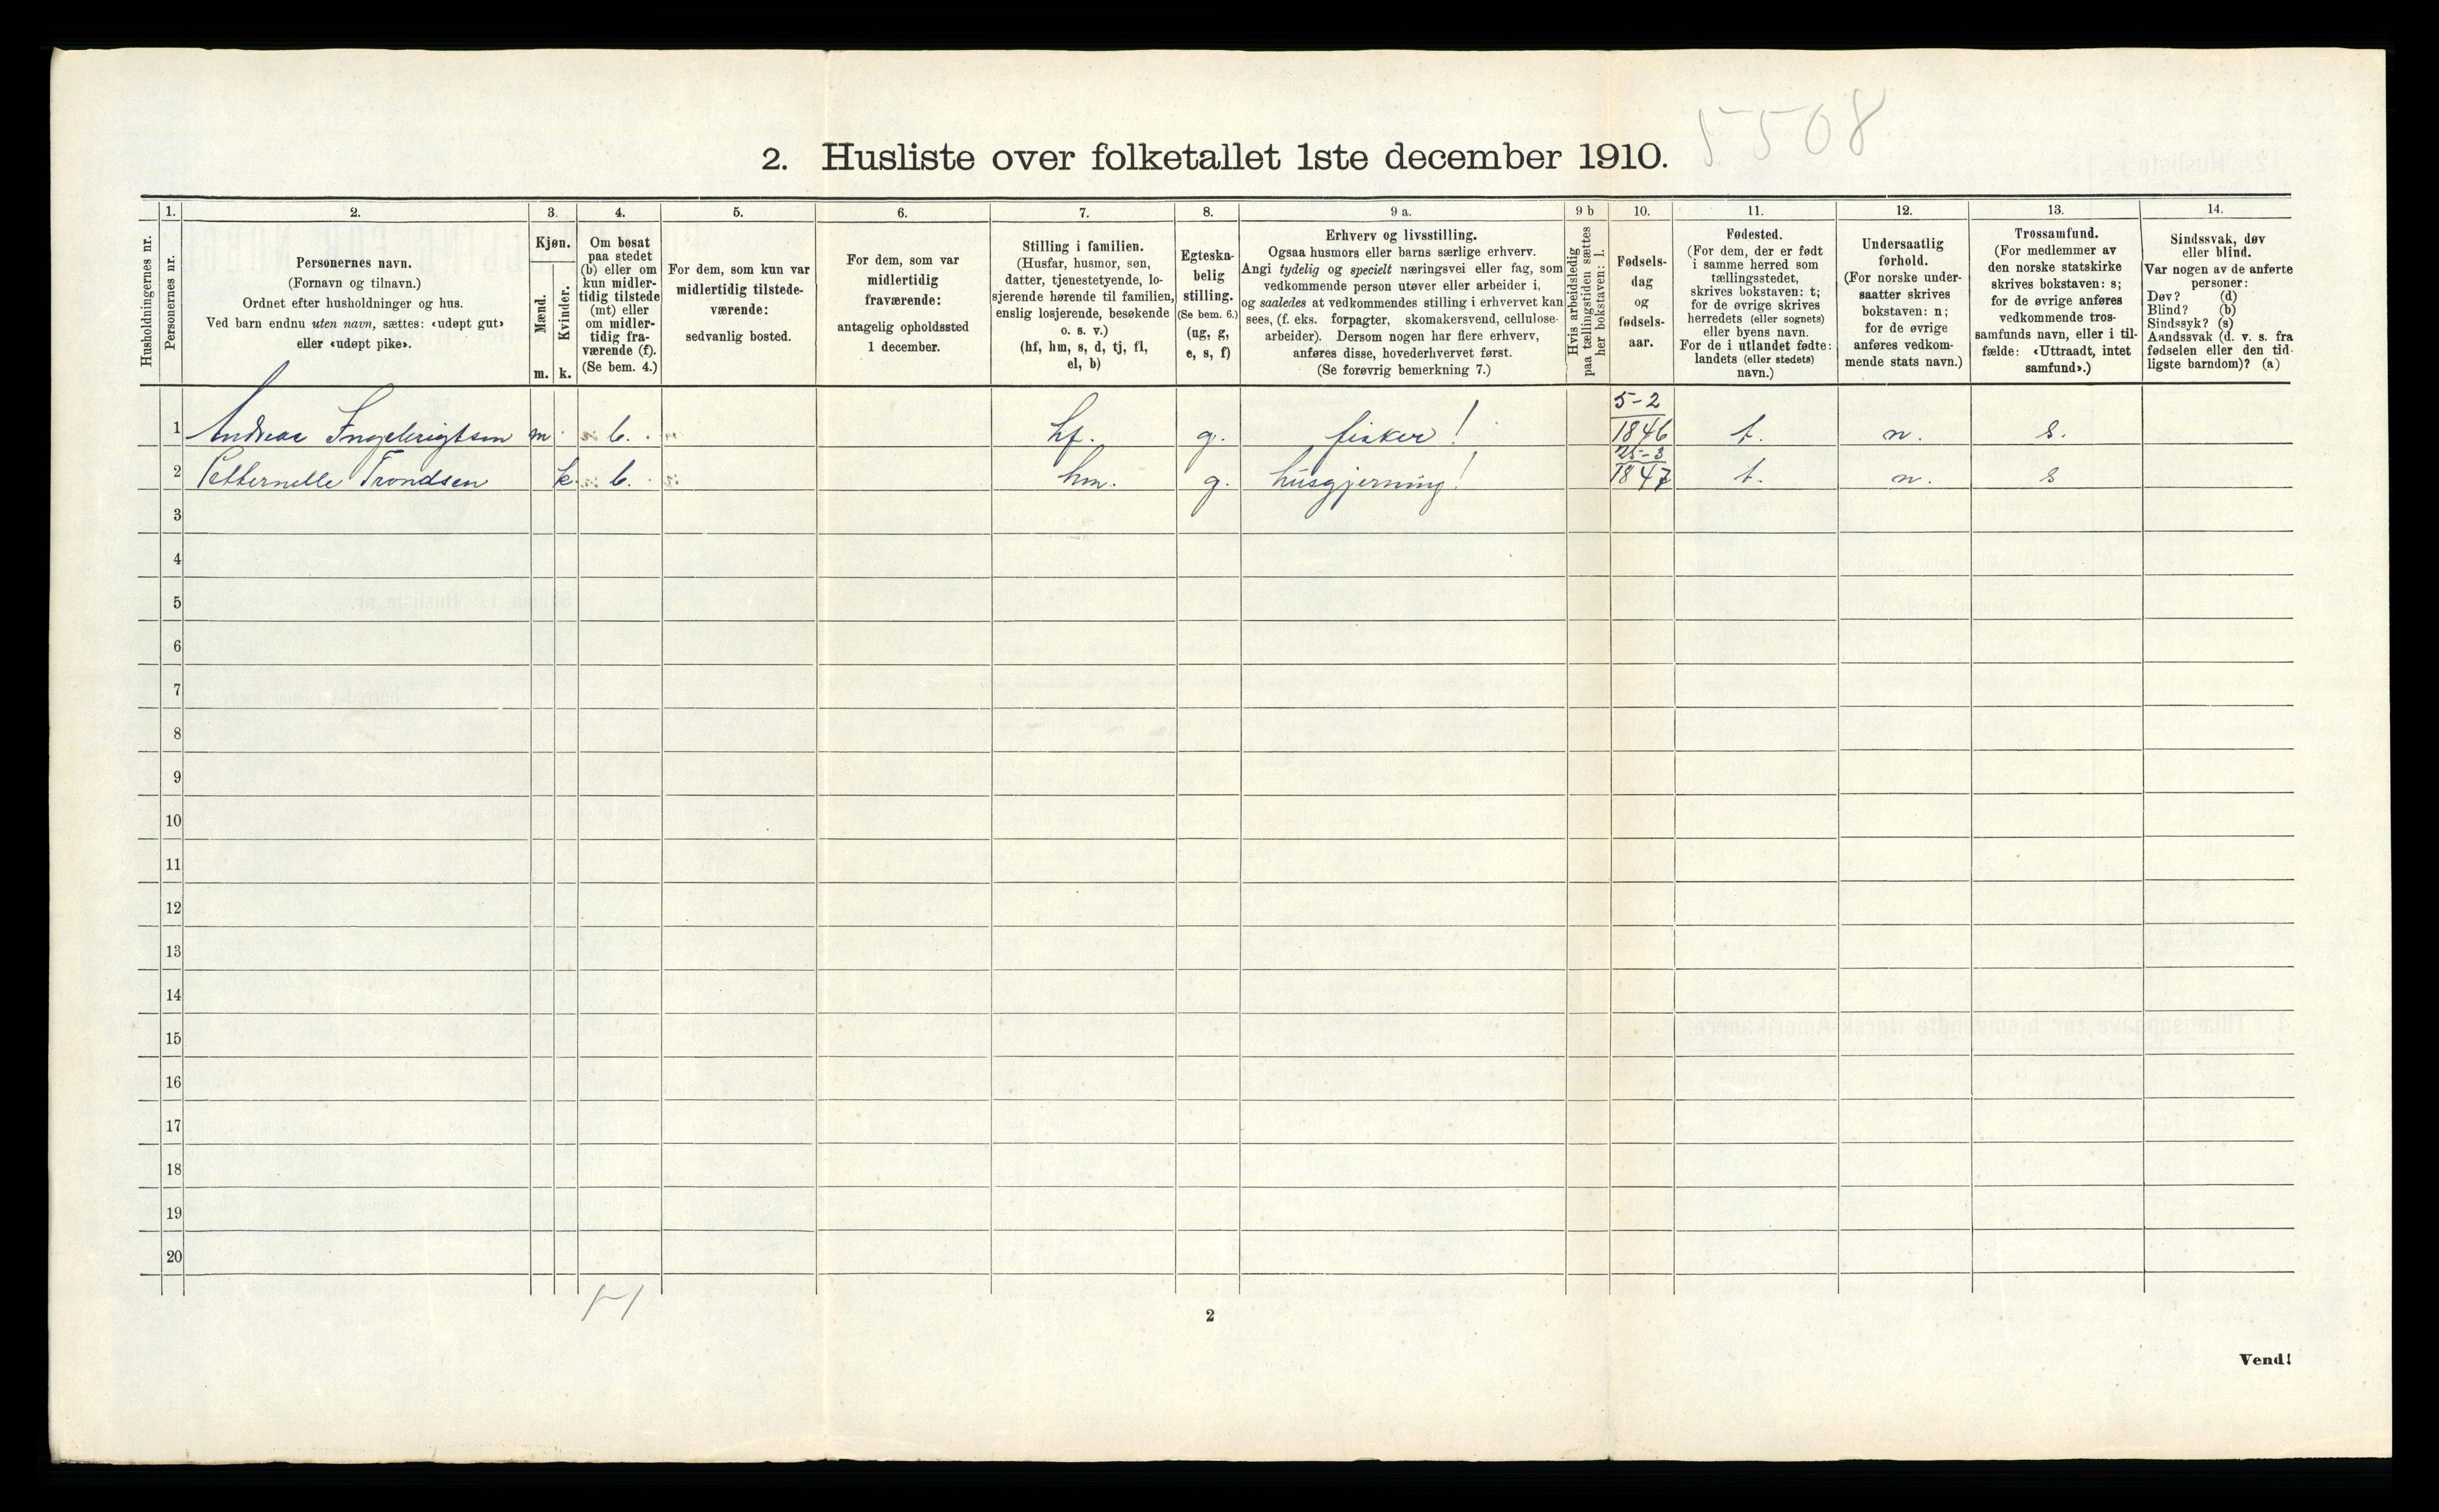 5508
2. Husliste over folketallet 1ste december 1910.
Husholdningernes nr.
1.
Personernes nr.
2.
Personernes navn.
(Fornavn og tilnavn.)
Ordnet efter husholdninger og hus.
Ved barn endnu uten navn, sættes: «udøpt gut»
eller «udøpt pike».
3.
Kjøn.
Mænd.
Kvinder.
m.
k.
4.
Om bosat
paa stedet
(b) eller om
kun midler-
tidig tilstede
(mt) eller
om midler-
tidig fra-
værende (f).
(Se bem. 4.)
5.
For dem, som kun var
midlertidig tilstede-
værende:
sedvanlig bosted.
6.
For dem, som var
midlertidig
fraværende:
antagelig opholdssted
1 december.
7.
Stilling i familien.
(Husfar, husmor, søn,
datter, tjenestetyende, lo-
sjerende hørende til familien,
enslig losjerende, besøkende
o. s. v.)
(hf, hm, s, d, tj, fl,
el, b)
8.
Egteska-
belig
stilling.
(Se bem. 6.)
(ug, g,
e, s, f)
9 a.
Erhverv og livsstilling.
Ogsaa husmors eller barns særlige erhverv.
Angi tydelig og specielt næringsvei eller fag, som
vedkommende person utøver eller arbeider i,
og saaledes at vedkommendes stilling i erhvervet kan
sees, (f. eks. forpagter, skomakersvend, cellulose-
arbeider). Dersom nogen har flere erhverv,
anføres disse, hovederhvervet først.
(Se forøvrig bemerkning 7.)
9 b
Hvis arbeidsledig
paa tællingstiden sættes
her bokstaven: l.
10.
Fødsels-
dag
og
fødsels-
aar.
11.
Fødested.
(For dem, der er født
i samme herred som
tællingsstedet,
skrives bokstaven: t;
for de øvrige skrives
herredets (eller sognets)
eller byens navn.
For de i utlandet fødte:
landets (eller stedets)
navn.)
12.
Undersaatlig
forhold.
(For norske under-
saatter skrives
bokstaven: n;
for de øvrige
anføres vedkom-
mende stats navn.)
13.
Trossamfund.
(For medlemmer av
den norske statskirke
skrives bokstaven: s;
for de øvrige anføres
vedkommende tros-
samfunds navn, eller i til-
fælde: «Uttraadt, intet
samfund».)
14.
Sindssvak, døv
eller blind.
Var nogen av de anførte
personer:
Døv? (d)
Blind? (b)
Sindssyk? (s)
Aandssvak (d. v. s. fra
fødselen eller den tid-
ligste barndom)? (a)
1 Andreas Ingebrigtsen m b. hf. g. fisker! 5-2 1846 t. n. s.
2 Petternelle Trondsen k b. hm. g. husgjerning! 25-3 1847 t. n. s
3
4
5
6
7
8
9
10
11
12
13
14
15
16
17
18
19
20
2
Vend!